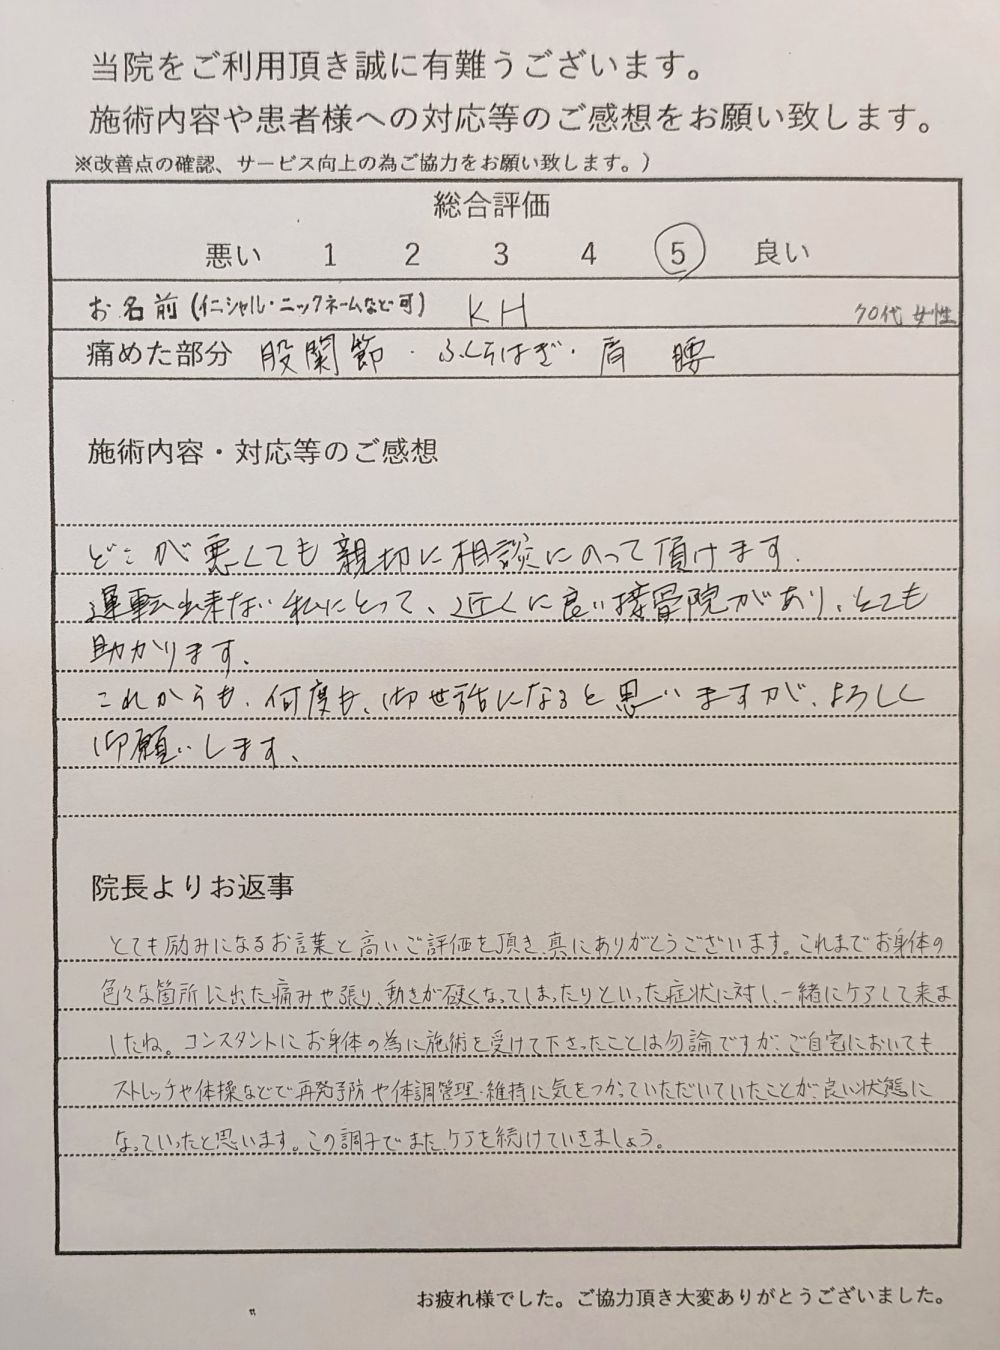 当院をご利用頂き誠に有難うございます。
施術内容や患者様への対応等のご感想をお願い致します。
※改善点の確認、サービス向上の為ご協力をお願い致します。）
総合評価
悪い 1 2 3 4 5 良い
お名前(イニシャル・ニックネームなど可) KH 70代 女性
痛めた部分 股関節・ふくらはぎ・肩 腰
施術内容・対応等のご感想
どこが悪くても親切に相談にのって頂けます.
運転出来ない私にとって、近くに良い接骨院があり、とても
助かります、
これからも、何度も、御世話になると思いますが、よろしく
御願いします、
院長よりお返事
とても励みになるお言葉と高いご評価を頂き、真にありがとうございます。これまでお身体の
色々な箇所に出た痛みや張り、動きが硬くなってしまったりといった症状に対し、一緒にケアして来ま
したね。コンスタントにお身体の為に施術を受けて下さったことは勿論ですが、ご自宅においても
ストレッチや体操などで再発予防や体調管理・維持に気をつかっていただいていたことが、良い状態に
なっていったと思います。この調子でまた、ケアを続けていきましょう。
お疲れ様でした。ご協力頂き大変ありがとうございました。